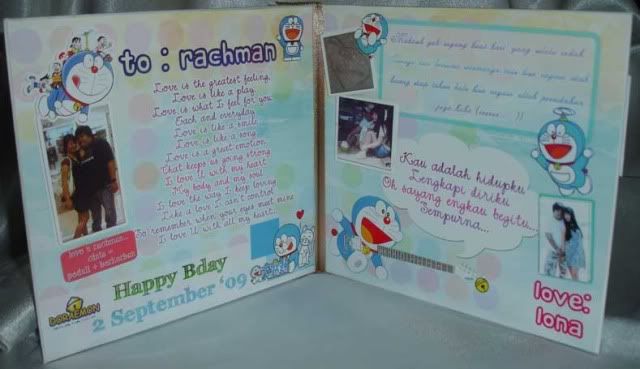 to : rachman
Love is the greatest feeling,
Love is like a play
Love is what I feel for you
Each and everyday
Love is like a smile
Love is like a song
Love is a great emotion
That keeps us going strong
I love U with my heart
My body and my soul
I love the way I keep loving
Like a love I can't control
So remember when your eyes meet mine
I love U with all my heart...
love u rachman...
cinta =
peduli + berkorban
Happy Bday
2 September '09
DORAEMON
Kau adalah hidupku
Lengkapi diriku
Oh sayang engkau begitu...
Sempurna...
love:
Iona